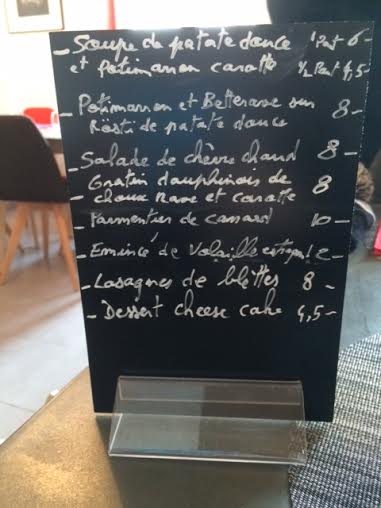 - Soupe de patate douce 1 Part 6-
et Potimarron carotte 1/2 Part 4,5-
- Potimarron et Betterave sur 8-
Rösti de patate douce
- Salade de chèvre chaud 8-
Gratin dauphinois de
- choux Rave et carotte 8
- Parmentier de canard 10-
- Emincé de Volaille
- Lasagnes de blettes 8-
- Dessert cheese cake 4,5-